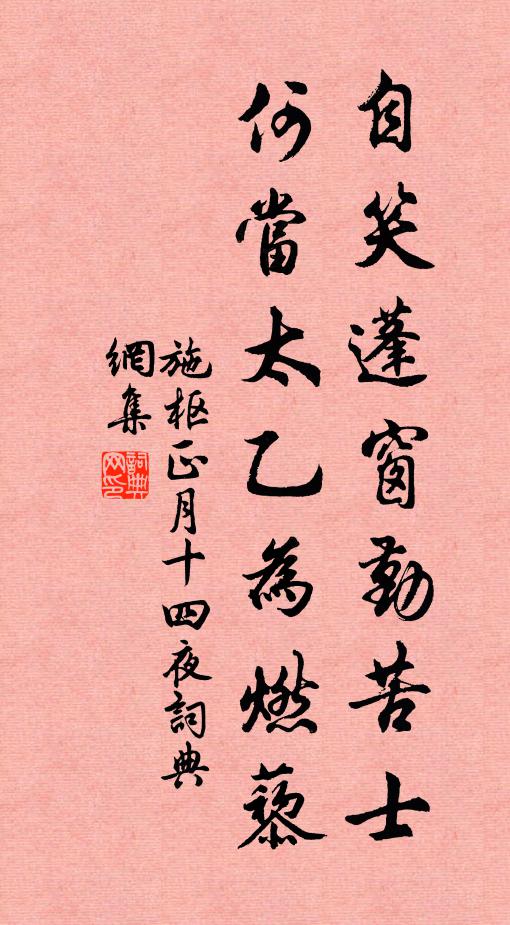 自笑蓬窗勤苦士
何當太乙為燃藜
施枢正月十四夜詞典
網集
詞典網印